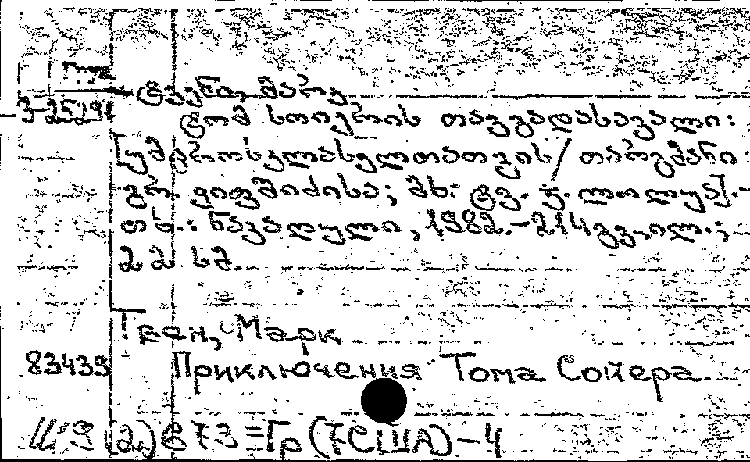 ტვენი, მარკ
ტომ სოიერის თავგადასავალი:
[უმცროსკლასელთათვის/ თარგმანი
გრ. კიფშიძისა; მხ: ტვ.
თბ.: ნაკადული, 1982.-214 გვ., ილ.;
22 სმ
Твен, Марк
83439 Приключения Тома Сойера
И(2)873=Гр(7США)-4